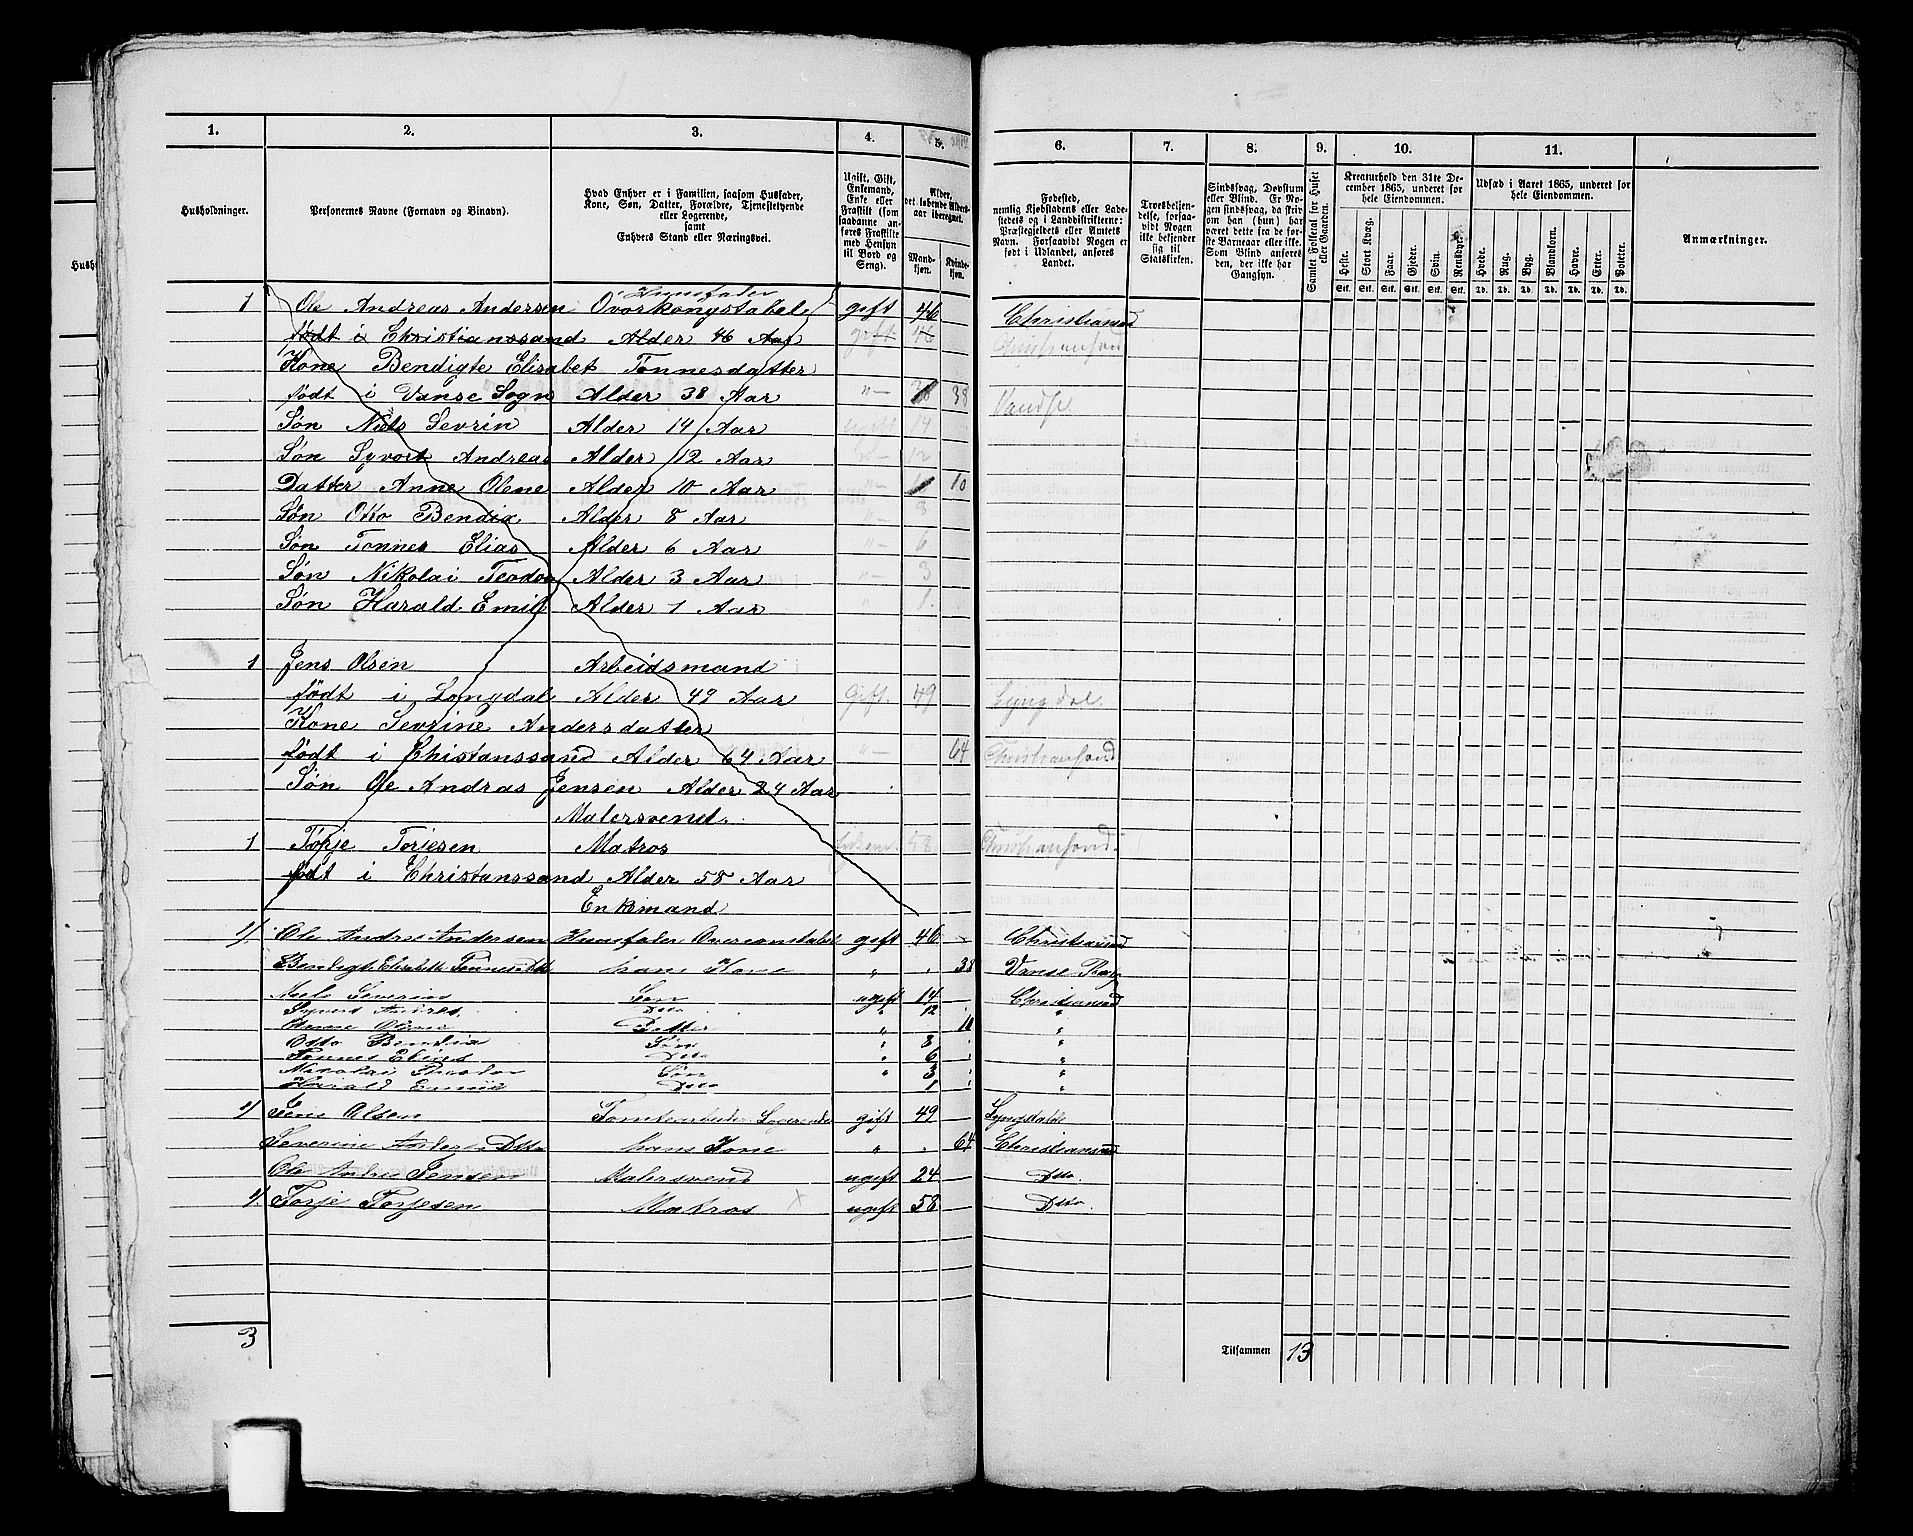 1. 2. 3. 4. 5. 6. 7. 8. 9. 10. 11.
Husholdninger.
Personernes Navne (Fornavn og Binavn).
Hvad Enhver er i Familien, saasom Husfader,
Kone, Søn, Datter, Forældre, Tjenestetyende
eller Logerende,
samt
Enhvers Stand eller Næringsvei.
Ugift, Gift,
Enkemand,
Enke eller
Fraskilt (som
saadanne an-
føres Fraskilte
med Hensyn
til Bord og
Seng).
Alder,
det løbende Alders-
aar iberegnet.
Mand-
kjøn.
Kvinde-
kjøn.
Fødested,
nemlig Kjøbstadens eller Lade-
stedets og i Landdistrikterne:
Præstegjeldets eller Amtets
Navn. Forsaavidt Nogen er
født i Udlandet, anføres
Landet.
Troesbekjen-
delse, forsaa-
vidt Nogen
ikke bekjender
sig til
Statskirken.
Sindssvag, Døvstum
eller Blind. Er No-
gen sindssvag, da skriv
om han (hun) har
været dette fra de før-
ste Barneaar eller ikke.
Som Blind anføres
den, der ikke har
Gangsyn.
Samlet Folketal for Huset
eller Gaarden.
Kreaturhold den 31te De-
cember 1865, underet for
hele Eiendommen.
Heste. Stort Kvæg. Faar. Gjeder. Svin. Rensdyr.
Stk. Stk. Stk. Stk. Stk. Stk.
Udsæd i Aaret 1865, underet for
hele Eiendommen.
Hvede. Rug. Byg. Blandkorn. Havre. Erter. Poteter.
Td. Td. Td. Td. Td. Td. Td.
Anmærkninger.
Huusfader
1 Ole Andreas Andersen Overkongstabel gift 46 Christiansand
født i Christianssand Alder 46 Aar gift 46 Christiansand
Kone Bendigte Elisabet Tonnesdatter
født i Vanse Sogn Alder 38 Aar "- 38 Vandse
Søn Niels Sevrin Alder 14 Aar ugift 14
Søn Syvort Andreas Alder 12 Aar "- 12
Datter Anne Olene Alder 10 Aar "- 10
Søn Otto Bendix Alder 8 Aar "- 8
Søn Tonnes Elias Alder 6 Aar "- 6
Søn Nikolai Teodor Alder 3 Aar "- 3
Søn Harald Emil Alder 1 Aar " 1
1 Jens Olsen Arbeidsmand
født i Longdal Alder 49 Aar Gift. 49 Lyngdal
Kone Sevrine Andersdatter
født i Christanssand Alder 64 Aar "- 64 Christiansand
Søn Ole Andras Jensen Alder 24 Aar
Malersvend.
1 Torje Torjesen Matros Enkem. 58 Christiansand.
født i Christanssand Alder 58 Aar
Enkemand
1/ Ole Andres Andersen Huusfader Overconstabel gift 46 - Christiansand
Bendigte Elisabeth Tonnesdtt hans Kone " . 38 Vanse
Niels Severin Søn ugift 14 Christiansand
Syvert Andres Dtto " 12 "
Anne Olene Datter " 10 "
Otto Bendix Søn " 8 "
Tonnes Elias Dtto " 6 "
Nikolai Theodor Søn " 3 "
Harald Emil Dtto 1 "
1/ Jens Olsen Tomtearbeider Logerende gift 49 Lyngdal
Severine Dtto hans Kone " . 64 Christiansand
Ole Andres Jensen Malersvend ugift 24 Dtto
1/ Torje Torjesen Matros × ugift 58 Dtto
3 Tilsammen 13